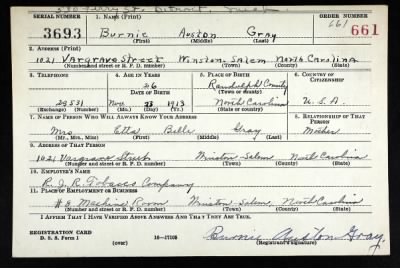 580 Ferry St. Detroit,
SERIAL NUMBER 1. NAME (Print) ORDER NUMBER
3693 Burnie Auston Gray 661
661
(First) (Middle) (Last)
2. ADDRESS (Print)
1021 Vargrave Street Winston-Salem North Carolina
(Number and street or R. F. D. number) (Town) (County) (State)
3. TELEPHONE 4. AGE IN YEARS 5. PLACE OF BIRTH 6. COUNTRY OF CITIZENSHIP
26 Randolph County
DATE OF BIRTH (Town or county)
29531 Nov. 23 1913 North Carolina U.S.A.
(Exchange) (Number) (Mo.) (Day) (Yr.) (State or country)
7. NAME OF PERSON WHO WILL ALWAYS KNOW YOUR ADDRESS 8. RELATIONSHIP OF THAT PERSON
Mrs Etta Belle Gray Mother
(Mr., Mrs., Miss) (First) (Middle) (Last)
9. ADDRESS OF THAT PERSON
1021 Vargrave Street Winston-Salem North Carolina
(Number and street or R. F. D. number) (Town) (County) (State)
10. EMPLOYER'S NAME
R. J. R. Tobacco Company
11. PLACE OF EMPLOYMENT OR BUSINESS
#8 Machine Room Winston-Salem, North Carolina
(Number and street or R. F. D. number) (Town) (County) (State)
I AFFIRM THAT I HAVE VERIFIED ABOVE ANSWERS AND THAT THEY ARE TRUE.
REGISTRATION CARD
D. S. S. Form 1 (over) 16-17105 Burnie Auston Gray
(Registrant's signature)